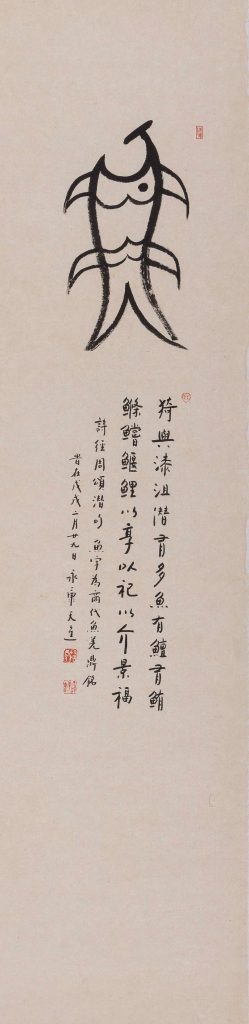 魚
猗與漆沮潛有多魚有鱣有鮪
鰷鱨鰋鯉以享以祀以介景福
詩經周頌潛句 魚字為商代魚羌鼎銘
旹在戊戌二月廿九日 永康天